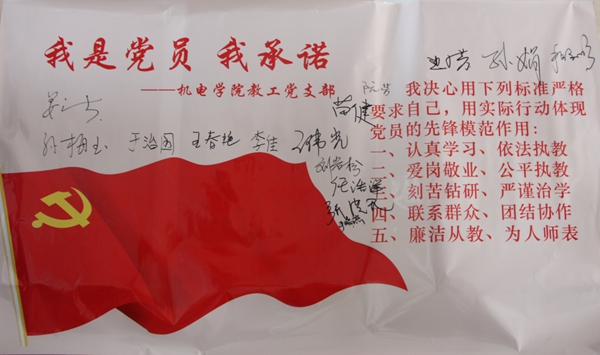 我是党员 我承诺
——机电学院教工党支部
于治国 王春艳 李佳
苗健
孙娟
我决心用下列标准严格
要求自己，用实际行动体现
党员的先锋模范作用：
一、认真学习、依法执教
二、爱岗敬业、公平执教
三、刻苦钻研、严谨治学
四、联系群众、团结协作
五、廉洁从教、为人师表